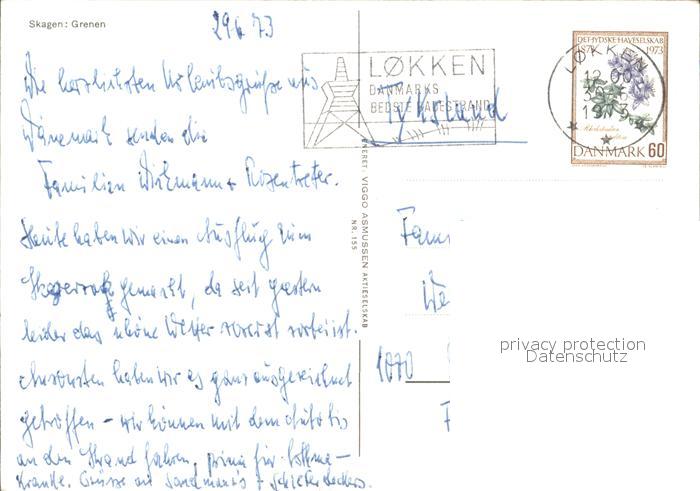 Skagen: Grenen
29.6.73
Die herzlichsten Urlaubsgrüsse aus
Dänemark senden die
Familien + Rosentreter.
Heute haben wir einen Ausflug zum
Skagerrak gemacht, da seit gestern
leider das schöne Wetter vorerst vorbei ist.
Ansonsten haben wir es ganz ausgezeichnet
getroffen - wir können mit dem Auto bis
an den Strand fahren, prima für Asthma-
Kranke. Grüsse an
ENERET: VIGGO ASMUSSEN AKTIESELSKAB
NR. 155
LØKKEN
DANMARKS
BEDSTE BADESTRAND
Tyskland
DET JYDSKE HAVESELSKAB
1873 1973
DANMARK 60
LØKKEN
12.00
Fam
We
1070
privacy protection
Datenschutz